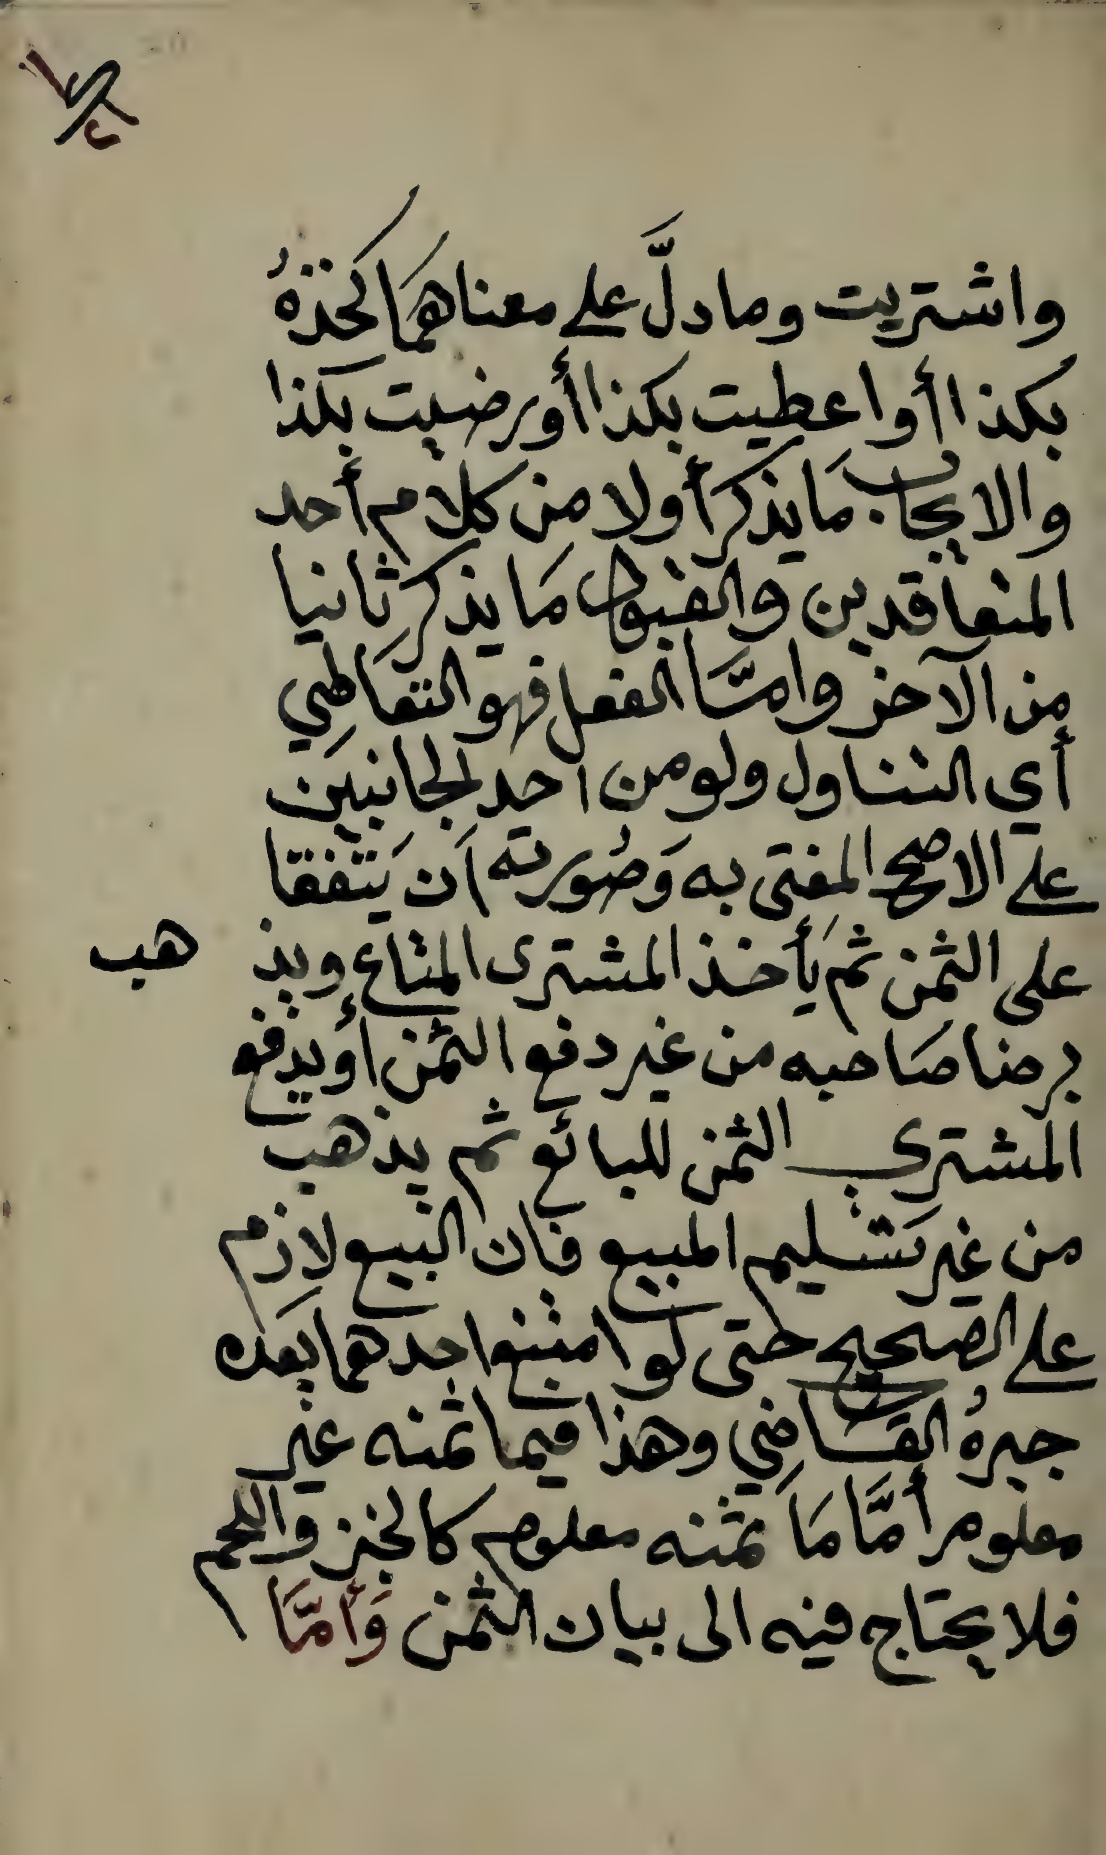 واشتريت وما دلَّ على معناهمَا كخذهُ
بكذا أو اعطيت بكذا أو رضيت بكذا
والايجاب مَا يذكر أولا من كلام أحد
المتعاقدين والقبول مَا يذكر ثانيا
من الآخر وامَّا الفعل فهو التعاطِي
أي التناول ولو من احد الجانبين
على الاصح المفتى به وَصُورته اَن يَتفقا
على الثمن ثم يَأخذ المشترى المتاع ويذ هب
برضا صَاحبه من غير دفع الثمن أو يدفع
المشتري الثمن للبائع ثم يذهب
من غير تَسليم المبيع فان البيع لازِم
على الصحيح حتى لو امتنع احدهما بعَده
جبرهُ القاضِي وهذا فيما ثمنه غير
معلوم أمَّا مَا ثمنه معلوم كالخبز واللحم
فلا يحتاج فيه الى بيان الثمن وَأمَّا